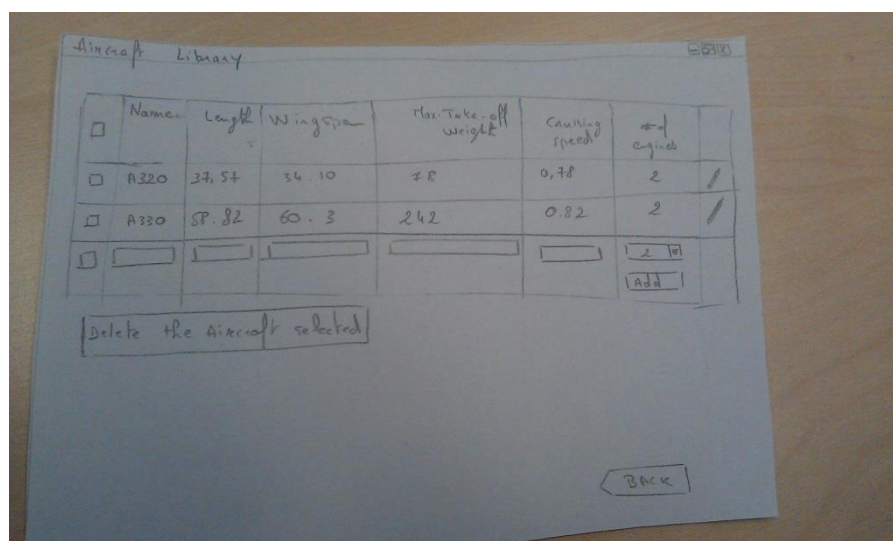 Aircraft Library
Name Length Wingspa Max. Take-off weight Cruising speed # of engines
A320 37,57 34.10 78 0,78 2
A330 58.82 60.3 242 0.82 2
2
Add
Delete the Aircraft selected
BACK